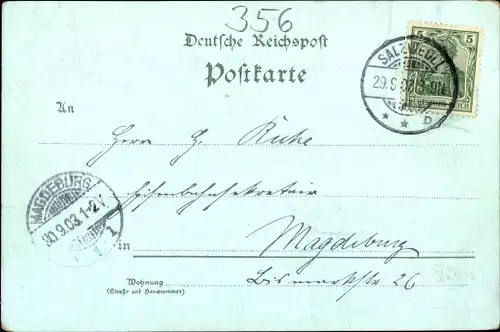 356
Deutsche Reichspost
Postkarte
5 5
SALZWEDEL
29.9.03
* * b
An
Herrn G. Ruhe
Eisenbahnsekretair
MAGDEBURG
30.9.03.1-2V.
1
in Magdeburg
Wohnung
(Straße und Hausnummer)
Bismarckstr 26